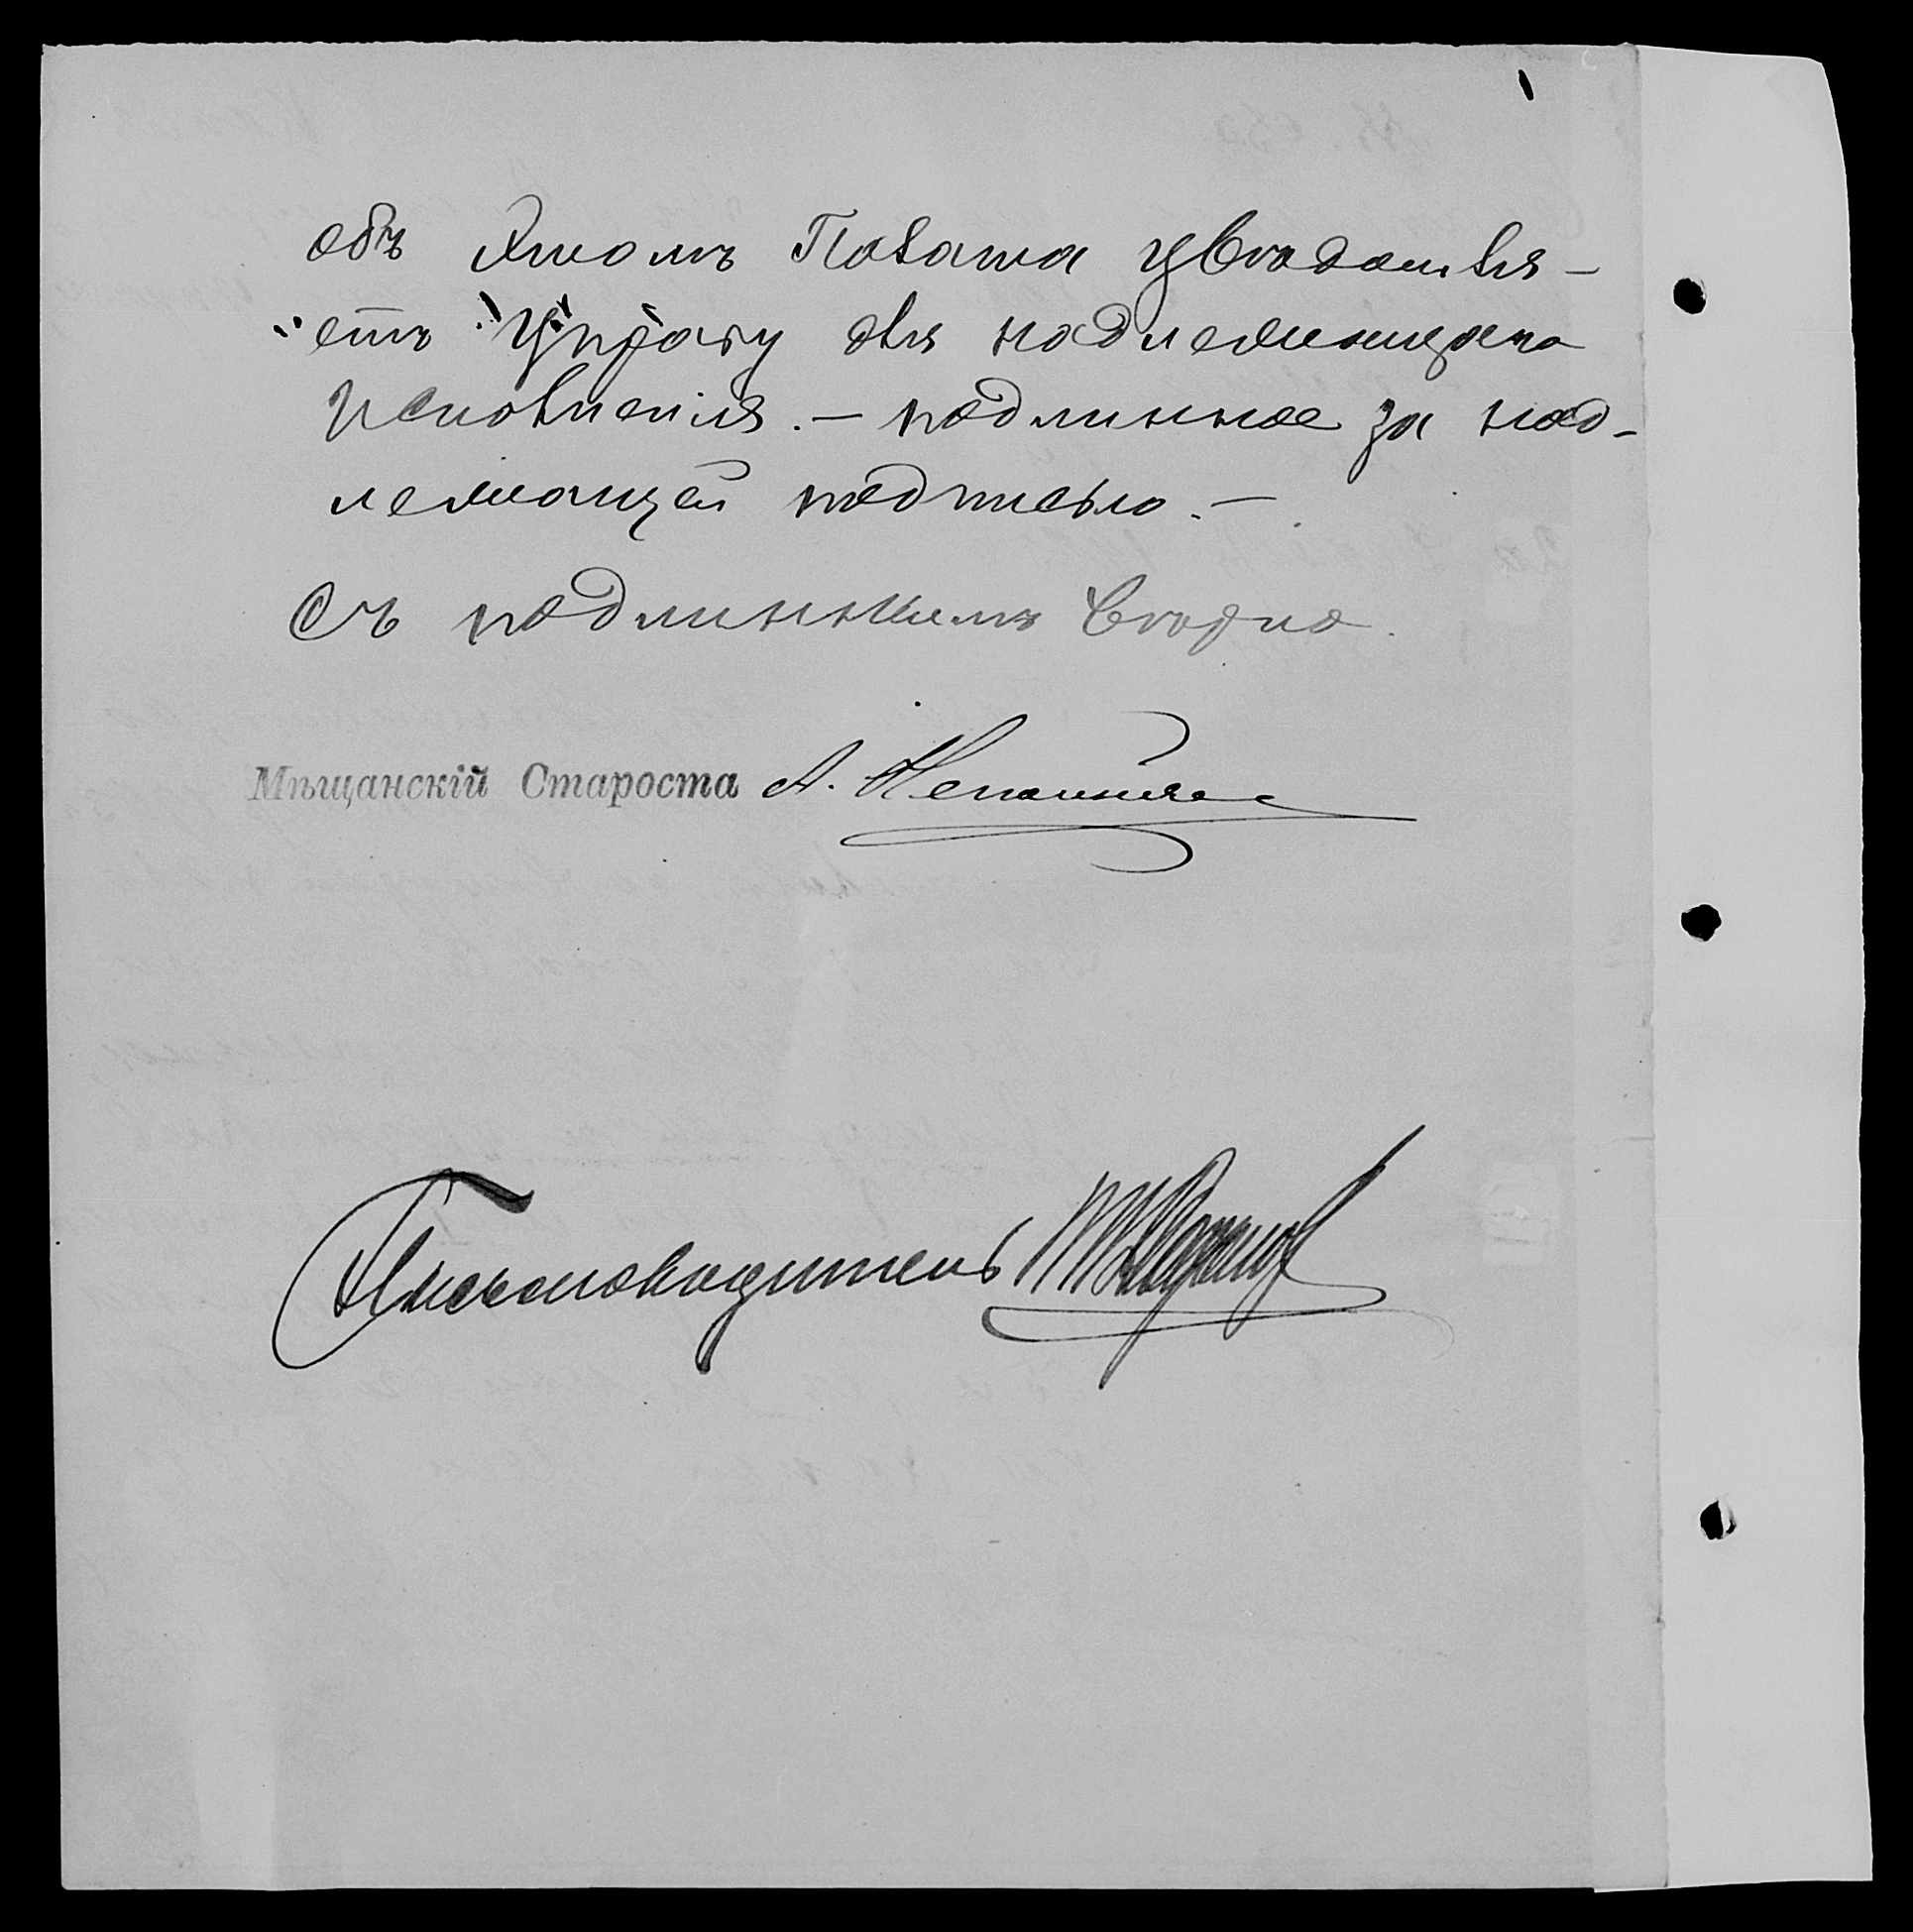 объ этомъ Палата увѣдомля-
етъ Управу для надлежащаго
исполненія. – подлинное за над-
лежащей подписью. –
Съ подлиннымъ вѣрно.
Мѣщанскій Староста А.
Письмоводитель